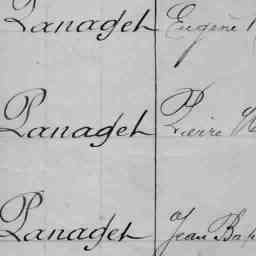 Panaget Eugène
Panaget Pierre
Panaget Jean Bap